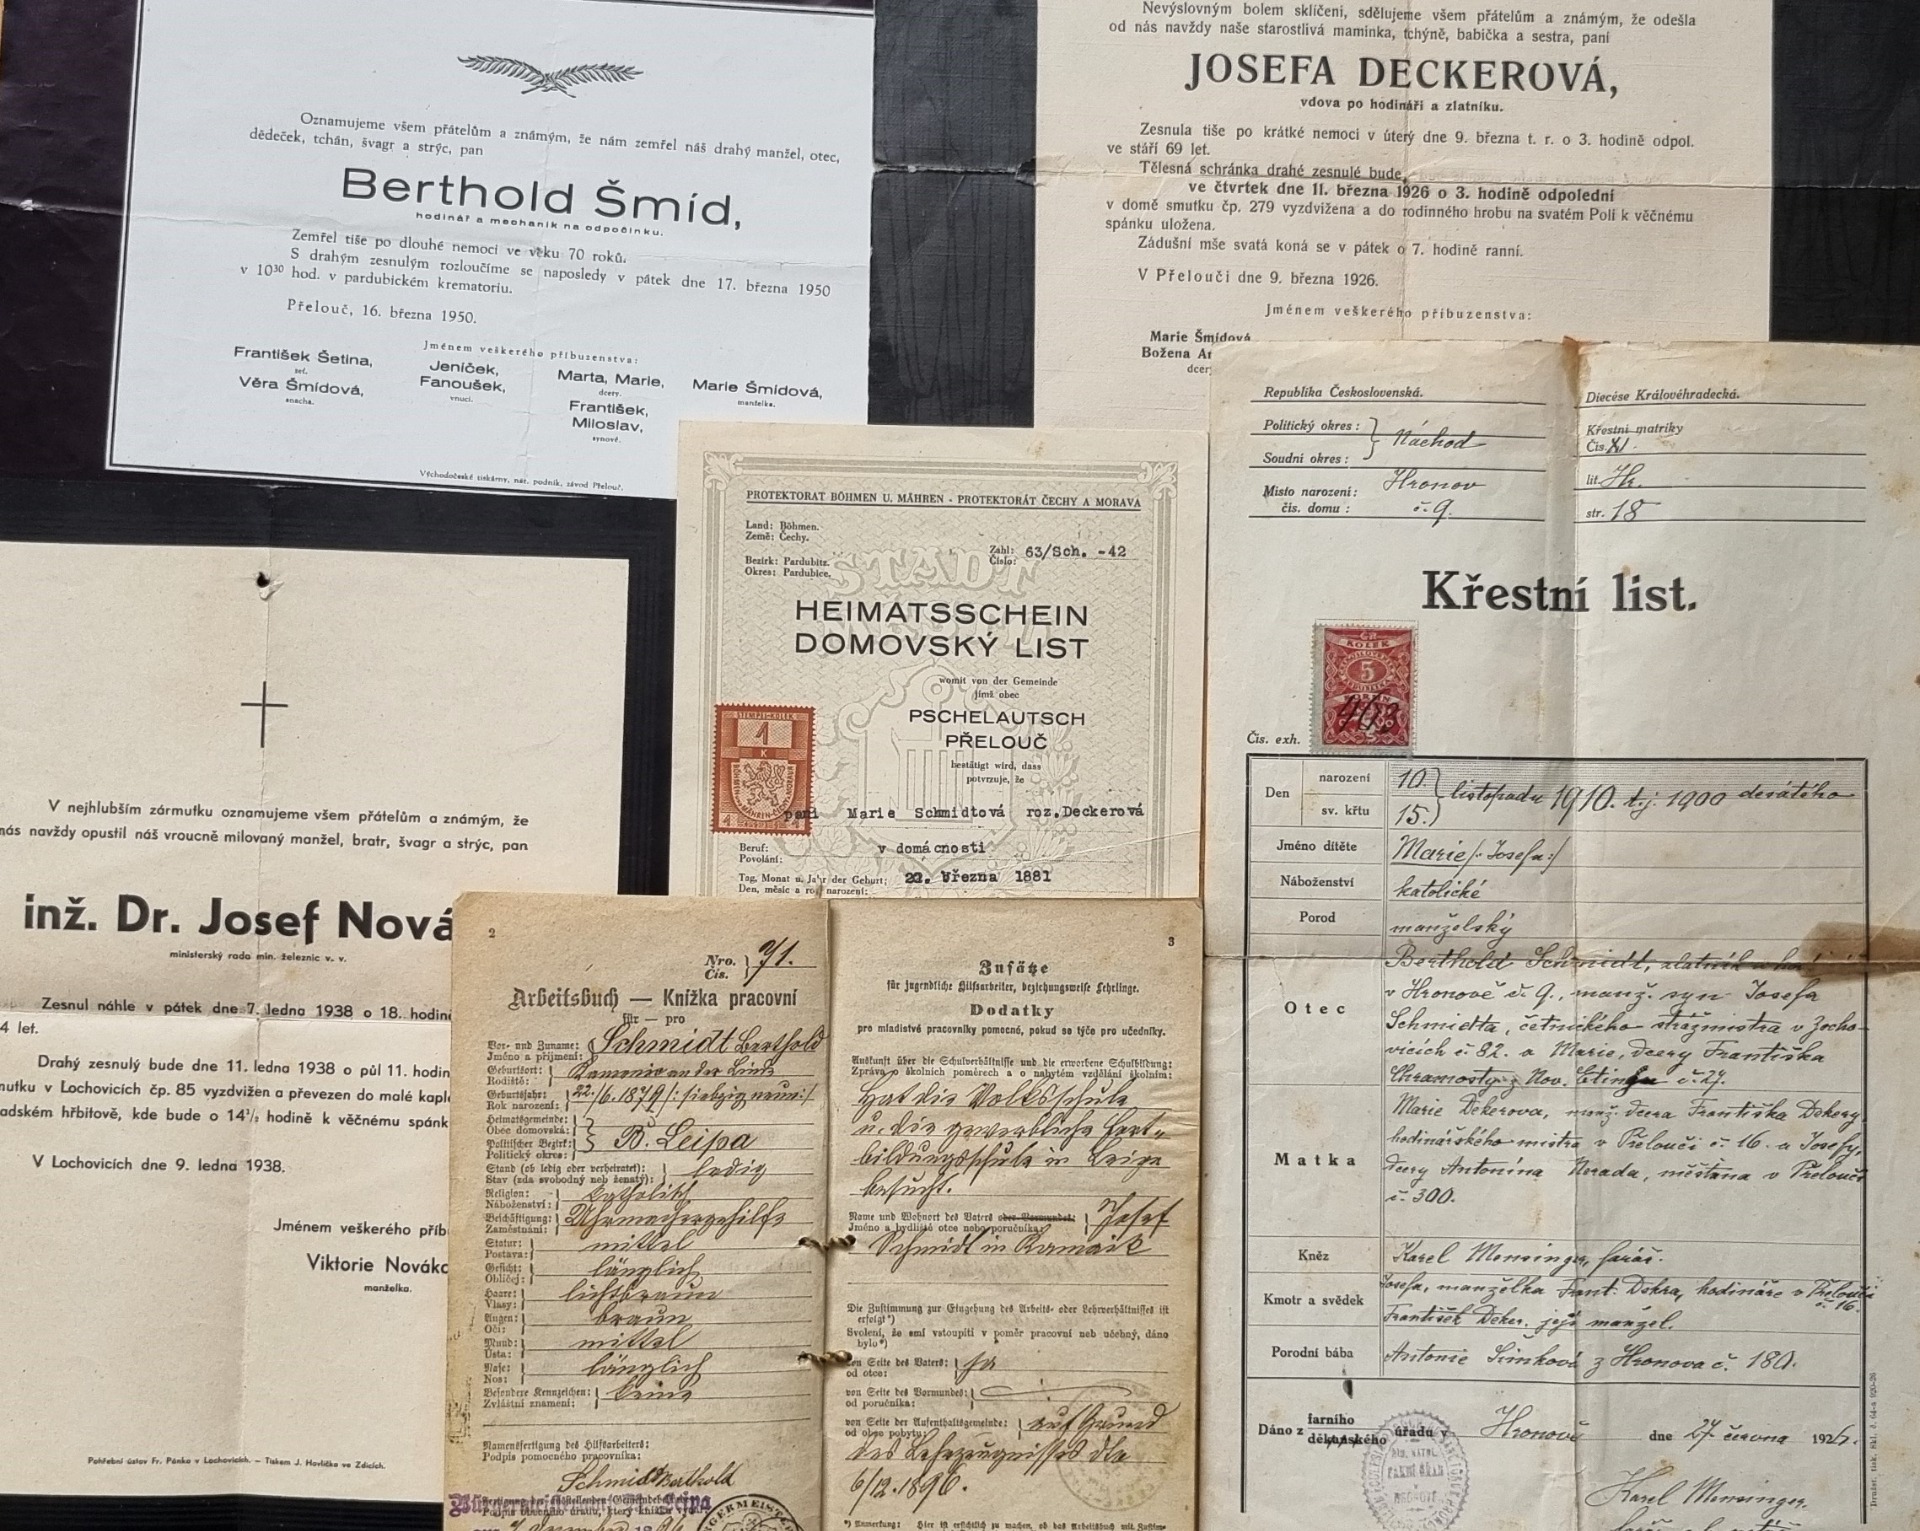 Oznamujeme všem přátelům a známým, že nám zemřel náš drahý manžel, otec,
dědeček, tchán, švagr a strýc, pan
Berthold Šmíd,
hodinář a mechanik na odpočinku.
Zemřel tiše po dlouhé nemoci ve věku 70 roků.
S drahým zesnulým rozloučíme se naposledy v pátek dne 17. března 1950
v 10³⁰ hod. v pardubickém krematoriu.
Přelouč, 16. března 1950.
Jménem veškerého příbuzenstva:
František Šetina,
zeť.
Věra Šmídová,
snacha.
Jeníček,
Fanoušek,
vnuci.
Marta, Marie,
dcery.
František,
Miloslav,
synové.
Marie Šmídová,
manželka.
Východočeské tiskárny, nár. podnik, závod Přelouč.
Nevýslovným bolem sklíčeni, sdělujeme všem přátelům a známým, že odešla
od nás navždy naše starostlivá maminka, tchýně, babička a sestra, paní
JOSEFA DECKEROVÁ,
vdova po hodináři a zlatníku.
Zesnula tiše po krátké nemoci v úterý dne 9. března t. r. o 3. hodině odpol.
ve stáří 69 let.
Tělesná schránka drahé zesnulé bude
ve čtvrtek dne 11. března 1926 o 3. hodině odpolední
v domě smutku čp. 279 vyzdvižena a do rodinného hrobu na svatém Poli k věčnému
spánku uložena.
Zádušní mše svatá koná se v pátek o 7. hodině ranní.
V Přelouči dne 9. března 1926.
Jménem veškerého příbuzenstva:
Marie Šmídová
Božena
dcery
V nejhlubším zármutku oznamujeme všem přátelům a známým, že
nás navždy opustil náš vroucně milovaný manžel, bratr, švagr a strýc, pan
inž. Dr. Josef Nová
ministerský rada min. železnic v. v.
Zesnul náhle v pátek dne 7. ledna 1938 o 18. hodin
4 let.
Drahý zesnulý bude dne 11. ledna 1938 o půl 11. hodin
mutku v Lochovicích čp. 85 vyzdvižen a převezen do malé kapl
adském hřbitově, kde bude o 14½ hodině k věčnému spánk
V Lochovicích dne 9. ledna 1938.
Jménem veškerého příb
Viktorie Nováko
manželka.
Pohřební ústav Fr. Pánka v Lochovicích. – Tiskem J. Hovlíčka ve Zdicích.
PROTEKTORAT BÖHMEN U. MÄHREN - PROTEKTORÁT ČECHY A MORAVA
Land: Böhmen.
Země: Čechy.
Bezirk: Pardubitz.
Okres: Pardubice.
Zahl: Číslo: 63/Sch. -42
STADT
HEIMATSSCHEIN
DOMOVSKÝ LIST
womit von der Gemeinde
jímž obec
PSCHELAUTSCH
PŘELOUČ
bestätigt wird, dass
potvrzuje, že
STEMPEL-KOLEK
1
K
paní Marie Schmidtová roz.Deckerová
Beruf:
Povolání: v domácnosti
Tag, Monat u. Jahr der Geburt:
Den, měsíc a rok narození: 22. března 1881
2
Nro. Čís. 71.
Arbeitsbuch — Knížka pracovní
für — pro
Vor- und Zuname: Jméno a příjmení: Schmidt Berthold
Geburtsort: Rodiště:
Geburtsjahr: Rok narození: 22./6. 1879 /: siebzig neun :/
Heimatsgemeinde: Obec domovská:
Politischer Bezirk: Politický okres: B. Leipa
Stand (ob ledig oder verheiratet): Stav (zda svobodný neb ženatý): ledig
Religion: Náboženství: katholisch
Beschäftigung: Zaměstnání: Uhrmachergehilfe
Statur: Postava: mittel
Gesicht: Obličej: länglich
Haare: Vlasy: lichtbraun
Augen: Oči: braun
Mund: Ústa: mittel
Nase: Nos: länglich
Besondere Kennzeichen: Zvláštní znamení: keine
Namensfertigung des Hilfsarbeiters:
Podpis pomocného pracovníka:
Schmidt Berthold
3
Zusätze
für jugendliche Hilfsarbeiter, beziehungsweise Lehrlinge.
Dodatky
pro mladistvé pracovníky pomocné, pokud se týče pro učedníky.
Auskunft über die Schulverhältnisse und die erworbene Schulbildung:
Zpráva o školních poměrech a o nabytém vzdělání školním:
Hat die Volksschule
u. die gewerbliche Fort-
bildungsschule in Leipa
besucht.
Name und Wohnort des Vaters oder Vormundes:
Jméno a bydliště otce nebo poručníka: Josef
Schmidt in Ramnik
Die Zustimmung zur Eingehung des Arbeits- oder Lehrverhältnisses ist
erfolgt*)
Svolení, že smí vstoupiti v poměr pracovní neb učebný, dáno
bylo*)
von Seite des Vaters: od otce: ja
von Seite des Vormundes:
od poručníka:
von Seite der Aufenthaltsgemeinde:
od obce pobytu: auf Grund
des Lehrzeugnisses dto
6/12. 1896.
Republika Československá.
Politický okres:
Soudní okres: Náchod
Místo narození: Hronov
čís. domu: č. 9.
Diecése Královéhradecká.
Křestní matriky
Čís. XI
lit. Hr.
str. 18
Křestní list.
KOLEK
5
Čís. exh. 
Den narození 10. listopadu 1910. t.j. 1900 desátého
sv. křtu 15.
Jméno dítěte Marie /: Josefa :/
Náboženství katolické
Porod manželský
Otec Berthold Schmidt, zlatník a
v Hronově č. 9., manž. syn Josefa
Schmidta, četnického strážmistra v Zocho-
vicích č. 82. a Marie, dcery Františka
Chramosty z Nov. Etingu č. 27.
Matka Marie Dekerova, manž. dcera Františka Dekery,
hodinářského mistra v Přelouči č. 16. a Josefy,
dcery Antonína Nerada, měšťana v Přelouči
č. 300.
Kněz Karel Mensinger, farář.
Kmotr a svědek Josefa, manželka Frant. Dekra, hodináře v Přelouči č. 16.
František Deker, její manžel.
Porodní bába Antonie Šimková z Hronova č. 180.
Dáno z farního děkanského úřadu v Hronově dne 27. června 192
Karel Mensinger,